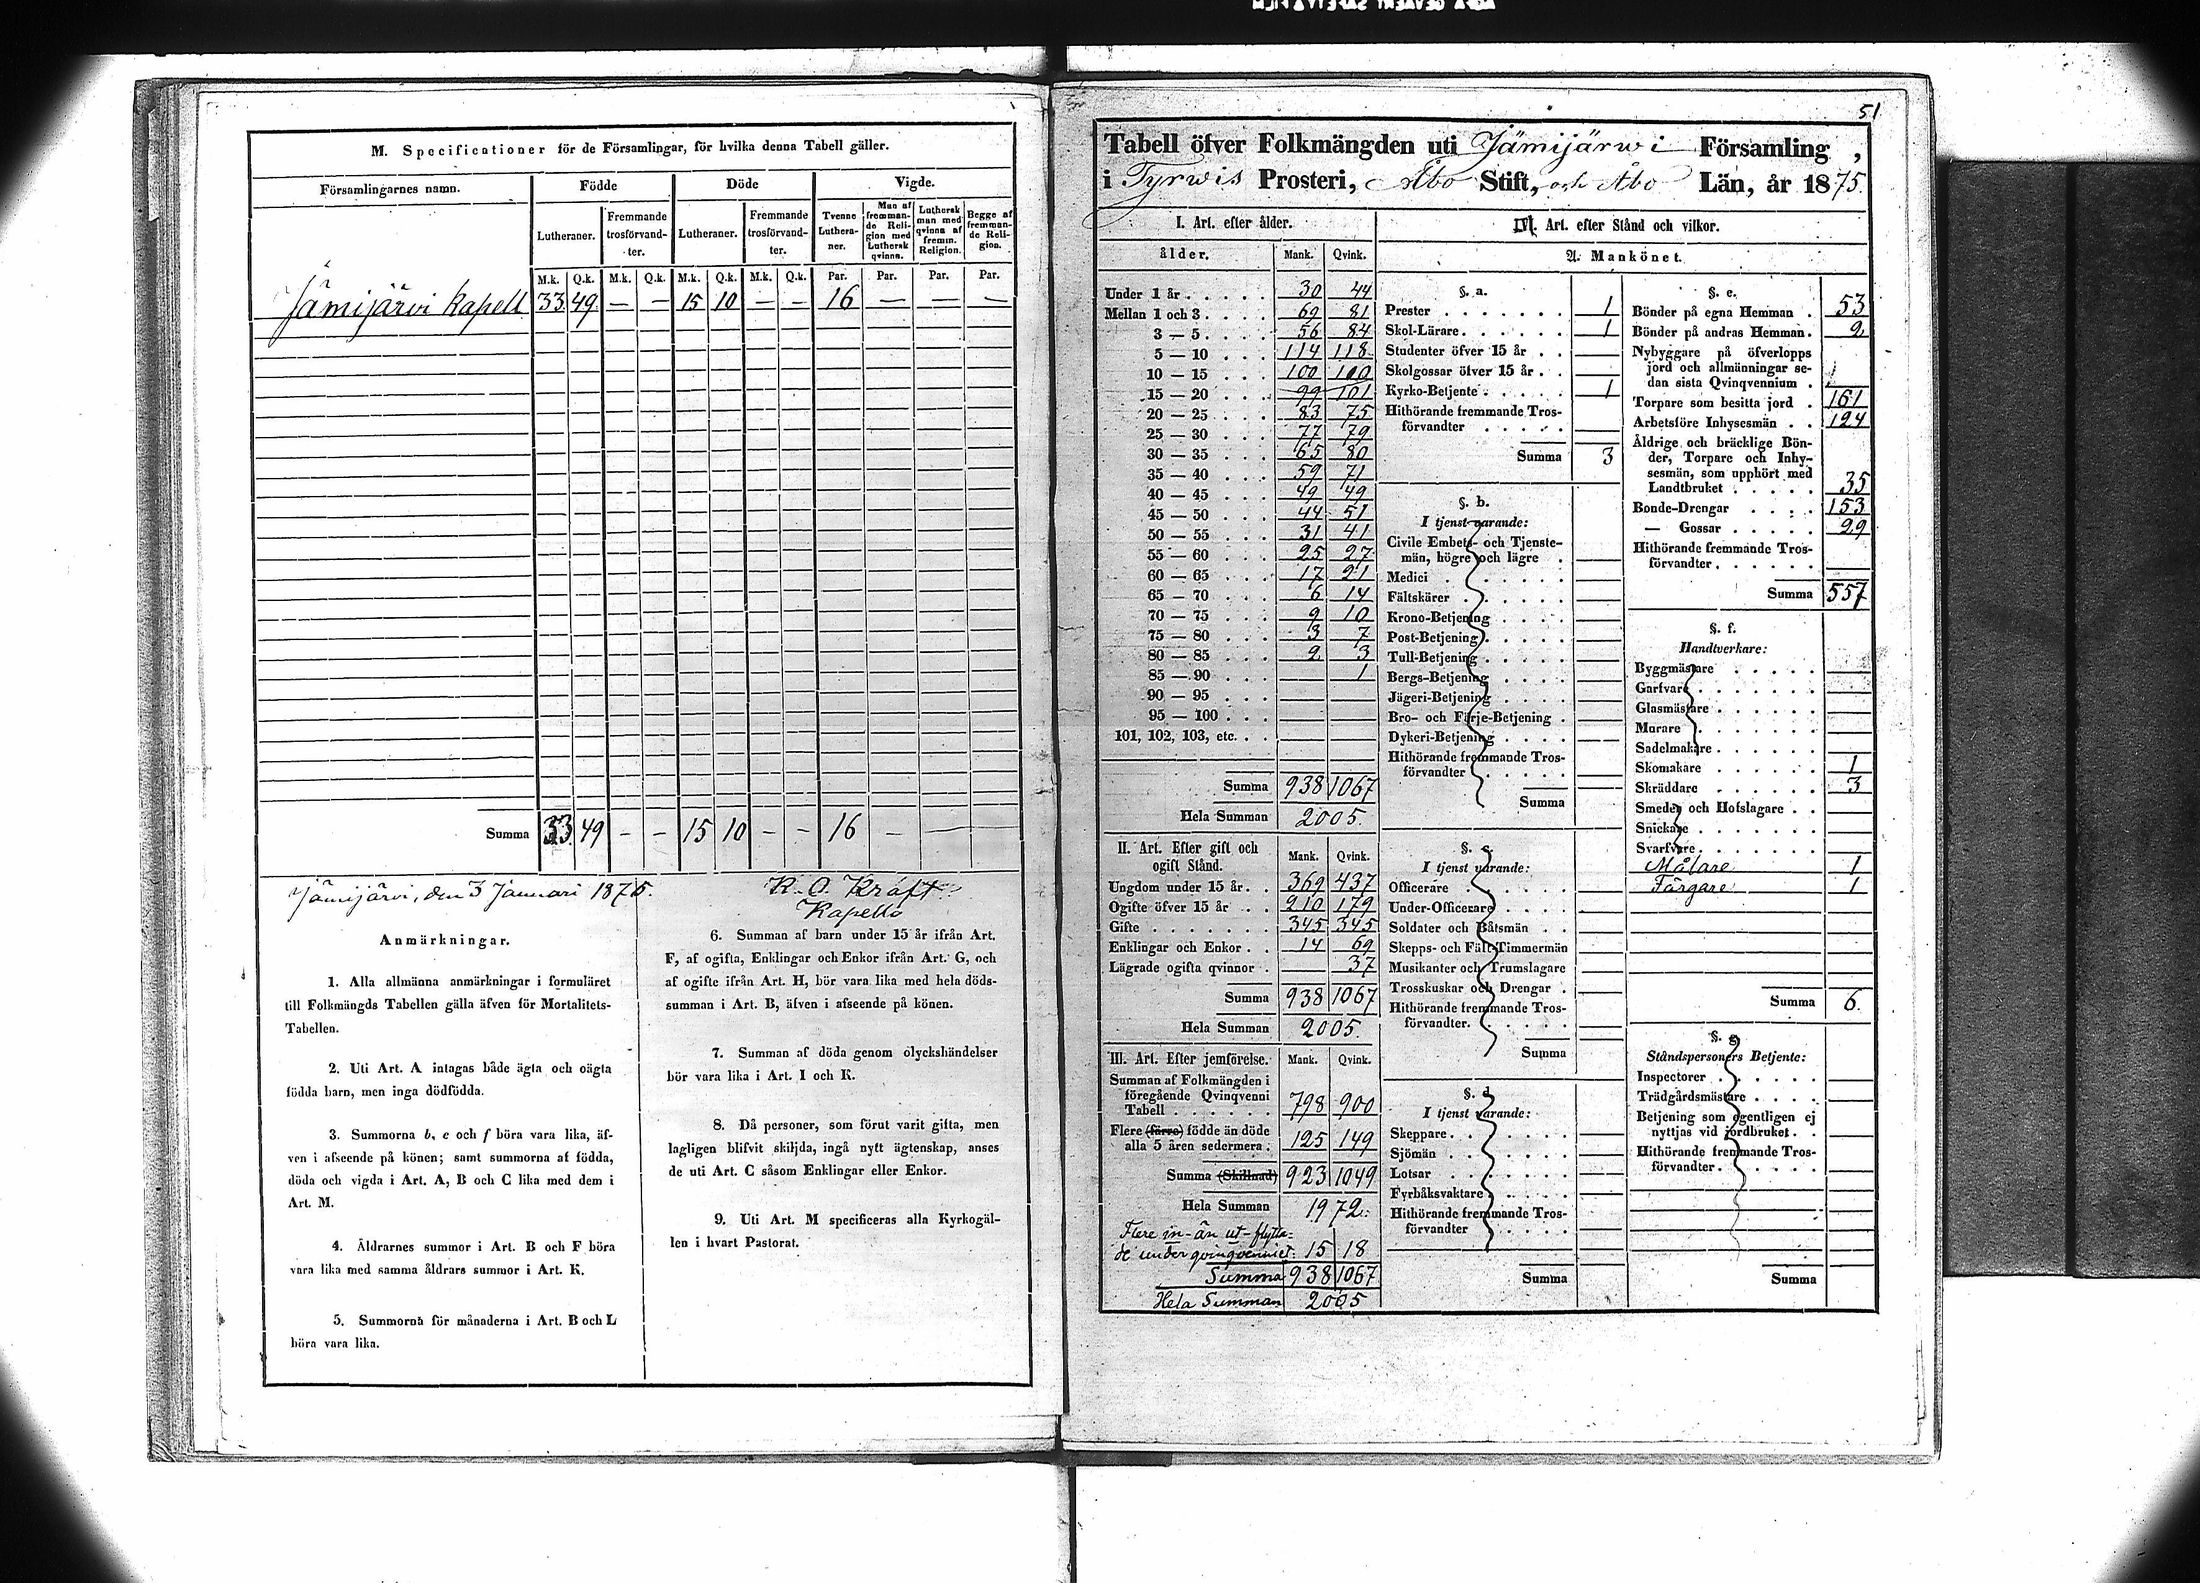 M. Specificationer för de Församlingar, för hvilka denna Tabell gäller.
Församlingarnes namn. Födde Döde Vigde.
Lutheraner. Fremmande trosförvandter. Lutheraner. Fremmande trosförvandter. Tvenne Lutheraner. Man af fremmande Religion med Luthersk qvinna. Luthersk man med qvinna af fremm. Religion. Begge af fremmande Religion.
M.k. Q.k. M.k. Q.k. M.k. Q.k. M.k. Q.k. Par. Par. Par. Par.
Jämijärvi Kapell 33 49 — — 15 10 — — 16 — — —
Summa 33 49 - - 15 10 - - 16 — —
Jämijärvi, den 3 Januari 1876.
K. O. Kräft
Anmärkningar.
1. Alla allmänna anmärkningar i formuläret
till Folkmängds Tabellen gälla äfven för Mortalitets-
Tabellen.
2. Uti Art. A intagas både ägta och oägta
födda barn, men inga dödfödda.
3. Summorna b, c och f böra vara lika, äf-
ven i afseende på könen; samt summorna af födda,
döda och vigda i Art. A, B och C lika med dem i
Art. M.
4. Åldrarnes summor i Art. B och F böra
vara lika med samma åldrars summor i Art. K.
5. Summorna för månaderna i Art. B och L
böra vara lika.
6. Summan af barn under 15 år ifrån Art.
F, af ogifta, Enklingar och Enkor ifrån Art. G, och
af ogifte ifrån Art. H, bör vara lika med hela döds-
summan i Art. B, äfven i afseende på könen.
7. Summan af döda genom olyckshändelser
bör vara lika i Art. I och K.
8. Då personer, som förut varit gifta, men
lagligen blifvit skiljda, ingå nytt ägtenskap, anses
de uti Art. C såsom Enklingar eller Enkor.
9. Uti Art. M specificeras alla Kyrkogäl-
len i hvart Pastorat.
51
Tabell öfver Folkmängden uti Jämijärwi Församling,
i Tyrwis Prosteri, Åbo Stift, och Åbo Län, år 1875.
I. Art. efter ålder.
ålder. Mank. Qvink.
Under 1 år . . . . . 30 44
Mellan 1 och 3 . . . . 69 81
3 — 5 . . . . 56 84
5 — 10 . . . 114 118
10 — 15 . . . 100 110
15 — 20 . . . 99 101
20 — 25 . . . 83 75
25 — 30 . . . 77 79
30 — 35 . . . 65 80
35 — 40 . . . 59 71
40 — 45 . . . 49 49
45 — 50 . . . 44 51
50 — 55 . . . 31 41
55 — 60 . . . 25 27
60 — 65 . . . 17 21
65 — 70 . . . 6 14
70 — 75 . . . 9 10
75 — 80 . . . 3 7
80 — 85 . . . 2 3
85 — 90 . . . 1
90 — 95 . . . .
95 — 100 . . .
101, 102, 103, etc. . .
Summa 938 1067
Hela Summan 2005.
II. Art. Efter gift och
ogift Stånd. Mank. Qvink.
Ungdom under 15 år. . 369 437
Ogifte öfver 15 år . . 210 179
Gifte . . . . . . . 345 345
Enklingar och Enkor . . 14 69
Lägrade ogifta qvinnor . 37
Summa 938 1067
Hela Summan 2005.
III. Art. Efter jemförelse. Mank. Qvink.
Summan af Folkmängden i
föregående Qvinqvenni
Tabell . . . . . . 798 900
Flere (färre) födde än döde
alla 5 åren sedermera . 125 149
Summa (Skillnad) 923 1049
Hela Summan 1972.
Flere in- än ut- flytta-
de under qvinqvenniet: 15 18
Summa 938 1067
Hela Summan 2005
IV. Art. efter Stånd och vilkor.
A. Mankönet.
§. a.
Prester . . . . . . . 1
Skol-Lärare . . . . . . 1
Studenter öfver 15 år . .
Skolgossar öfver 15 år . .
Kyrko-Betjente . . . . . 1
Hithörande fremmande Tros-
förvandter . . . . .
Summa 3
§. b.
I tjenst varande:
Civile Embets- och Tjenste-
män, högre och lägre .
Medici . . . . . . .
Fältskärer . . . . . .
Krono-Betjening . . . .
Post-Betjening . . . . .
Tull-Betjening . . . . .
Bergs-Betjening . . . .
Jägeri-Betjening . . . .
Bro- och Färje-Betjening .
Dykeri-Betjening . . . .
Hithörande fremmande Tros-
förvandter . . . . .
Summa
§. c.
I tjenst varande:
Officerare . . . . . .
Under-Officerare . . . .
Soldater och Båtsmän . .
Skepps- och Fält-Timmermän
Musikanter och Trumslagare
Trosskuskar och Drengar .
Hithörande fremmande Tros-
förvandter. . . . . .
Summa
§. d.
I tjenst varande:
Skeppare . . . . . . .
Sjömän . . . . . . .
Lotsar . . . . . . .
Fyrbåksvaktare . . . . .
Hithörande fremmande Tros-
förvandter . . . . .
Summa
§. e.
Bönder på egna Hemman . 53
Bönder på andras Hemman . 2
Nybyggare på öfverlopps
jord och allmänningar se-
dan sista Qvinqvennium .
Torpare som besitta jord . 161
Arbetsföre Inhysesmän . . 124
Åldrige och bräcklige Bön-
der, Torpare och Inhy-
sesmän, som upphört med
Landtbruket . . . . . 35
Bonde-Drengar . . . . 153
— Gossar . . . . . 29
Hithörande fremmande Tros-
förvandter . . . . . .
Summa 557
§. f.
Handtverkare:
Byggmästare . . . . .
Garfvare . . . . . . .
Glasmästare . . . . . .
Murare . . . . . . .
Sadelmakare . . . . . .
Skomakare . . . . . . 1
Skräddare . . . . . . 3
Smeder och Hofslagare . .
Snickare . . . . . . .
Svarfvare . . . . . . .
Målare 1
Färgare 1
Summa 6.
§. g.
Ståndspersoners Betjente:
Inspectorer . . . . . .
Trädgårdsmästare . . . .
Betjening som egentligen ej
nyttjas vid jordbruket . .
Hithörande fremmande Tros-
förvandter . . . . . .
Summa